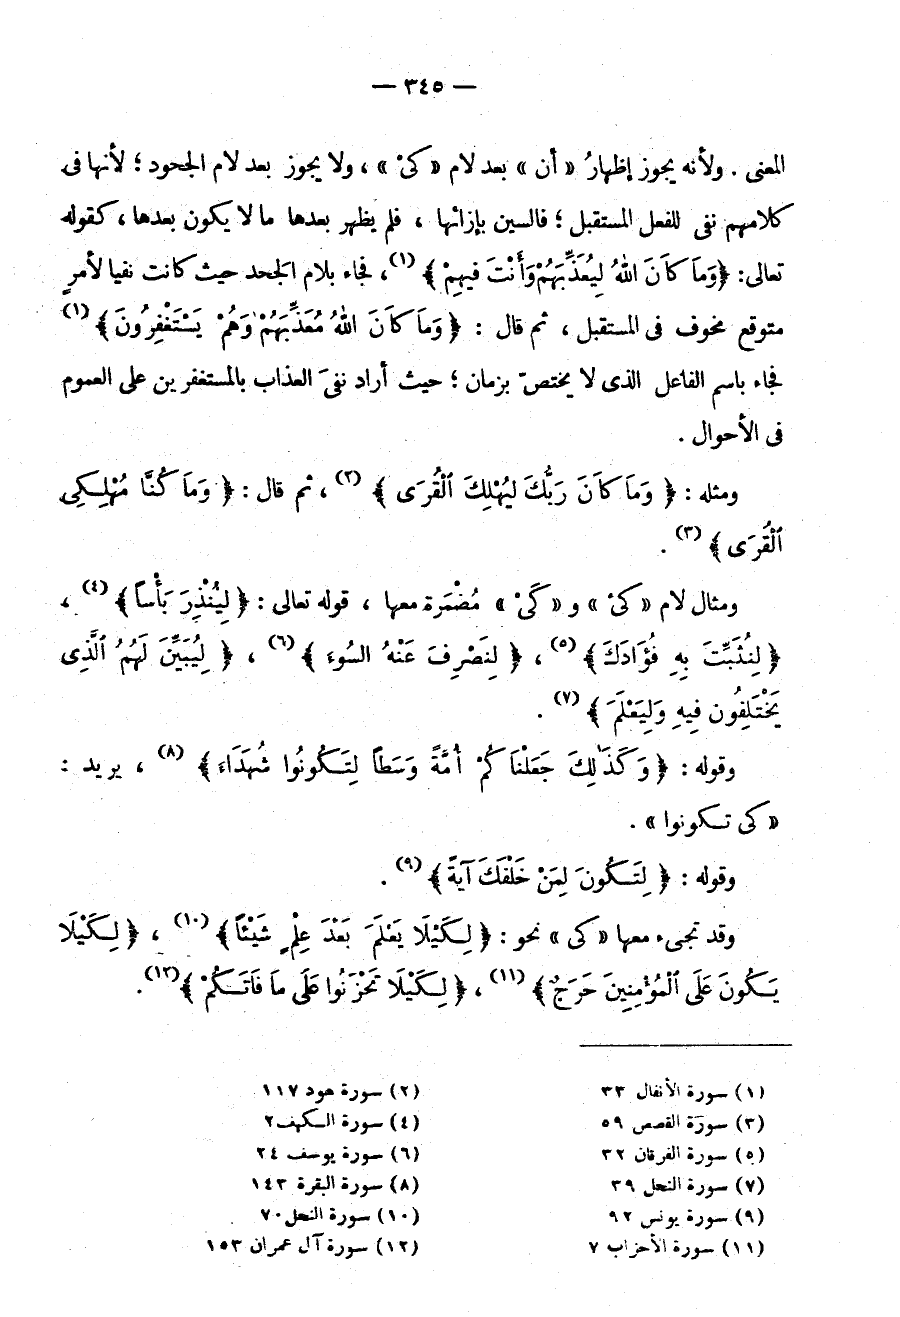 — ٣٤٥ —
المعنى . ولأنه يجوز إظهارُ « أن » بعد لام « كىْ » ، ولا يجوز بعد لام الجحود ؛ لأنها فى
كلامهم نفى للفعل المستقبل ؛ فالسين بإزائها ، فلم يظهر بعدها ما لا يكون بعدها ، كقوله
تعالى: ﴿وَمَا كَانَ اللهُ لِيُعَذِّبَهُمْ وَأَنْتَ فيهِمْ ﴾ (١)، فجاء بلام الجحد حيث كانت نفيا لأمرٍ
متوقع مخوف فى المستقبل ، ثم قال : ﴿ وَمَا كَانَ اللهُ مُعَذِّبَهُمْ وَهُمْ يَسْتَغْفِرُونَ ﴾ (١)
فجاء باسم الفاعل الذى لا يختصّ بزمان ؛ حيث أراد نفىَ العذاب بالمستغفرين على العموم
فى الأحوال .
ومثله : ﴿ وَمَا كَانَ رَبُّكَ لِيُهْلِكَ ٱلْقُرَى ﴾ (٢) ، ثم قال : ﴿ وَمَا كُنَّا مُهْلِكِى
ٱلْقُرَى ﴾ (٣) .
ومثال لام « كىْ » و « كَىْ » مُضْمَرة معها ، قوله تعالى : ﴿ لِيُنْذِرَ بَأْساً ﴾ (٤) ،
﴿ لِنُثَبِّتَ بِهِ فُؤَادَكَ ﴾ (٥) ، ﴿ لِنَصْرِفَ عَنْهُ السُوءَ ﴾ (٦) ، ﴿ لِيُبَيِّنَ لَهُمُ ٱلَّذِى
يَخْتَلِفُون فِيهِ وَلِيَعْلَمَ ﴾ (٧) .
وقوله : ﴿ وَكَذَٰلِكَ جَعَلْنَاكُمْ أُمَّةً وَسَطاً لِتَكُونُوا شُهَدَاءَ ﴾ (٨) ، يريد :
« كى تكونوا » .
وقوله : ﴿ لِتَكُونَ لِمَنْ خَلْفَكَ آيَةً ﴾ (٩) .
وقد تجىء معها « كى » نحو : ﴿ لِكَيْلَا يَعْلَمَ بَعْدَ عِلْمٍ شَيْئاً ﴾ (١٠) ، ﴿ لِكَيْلَا
يَكُونَ عَلَى ٱلْمُؤْمِنِينَ حَرَجٌ ﴾ (١١) ، ﴿ لِكَيْلَا تَحْزَنُوا عَلَى مَا فَاتَكُمْ ﴾ (١٢) .
(١) سورة الأنفال ٣٣
(٢) سورة هود ١١٧
(٣) سورة القصص ٥٩
(٤) سورة الكهف ٢
(٥) سورة الفرقان ٣٢
(٦) سورة يوسف ٢٤
(٧) سورة النحل ٣٩
(٨) سورة البقرة ١٤٣
(٩) سورة يونس ٩٢
(١٠) سورة النحل ٧٠
(١١) سورة الأحزاب ٧
(١٢) سورة آل عمران ١٥٣